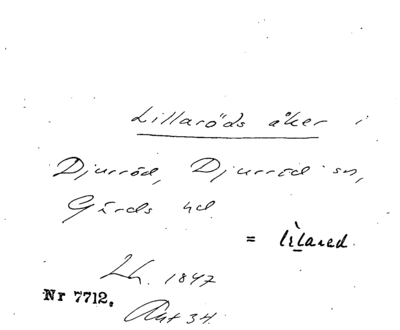 Lillaröds åker i
Djurröd, Djurröd sn,
Gärds hd
= lìlared.
Lh. 1847
Nr 7712.
Akt 34.